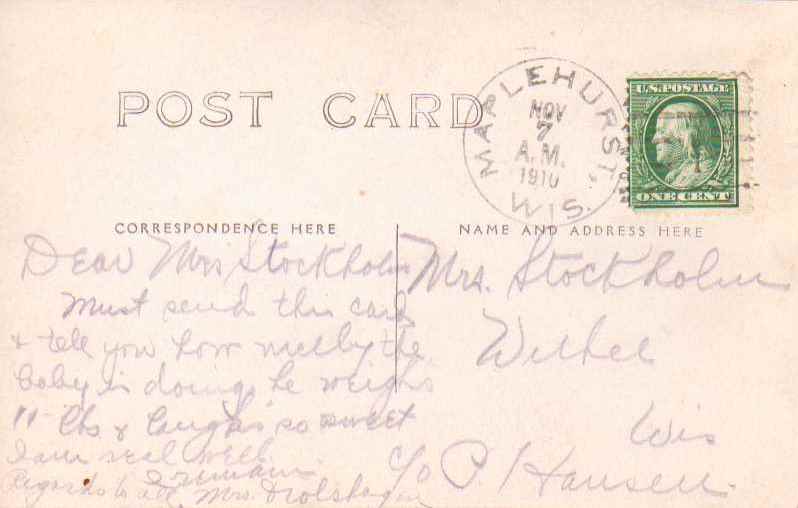 POST CARD
MAPLEHURST,
NOV
7
A.M.
1910
WIS.
U.S. POSTAGE
ONE CENT
CORRESPONDENCE HERE
NAME AND ADDRESS HERE
Dear Mrs Stockholm
Must send this card
& tell you how nicely the
baby is doing, he weighs
11 lbs & laughs so sweet
I am real well.
I remain
Regards to all, Mrs.
Mrs. Stockholm
Withee
Wis
c/o P. Hansen.